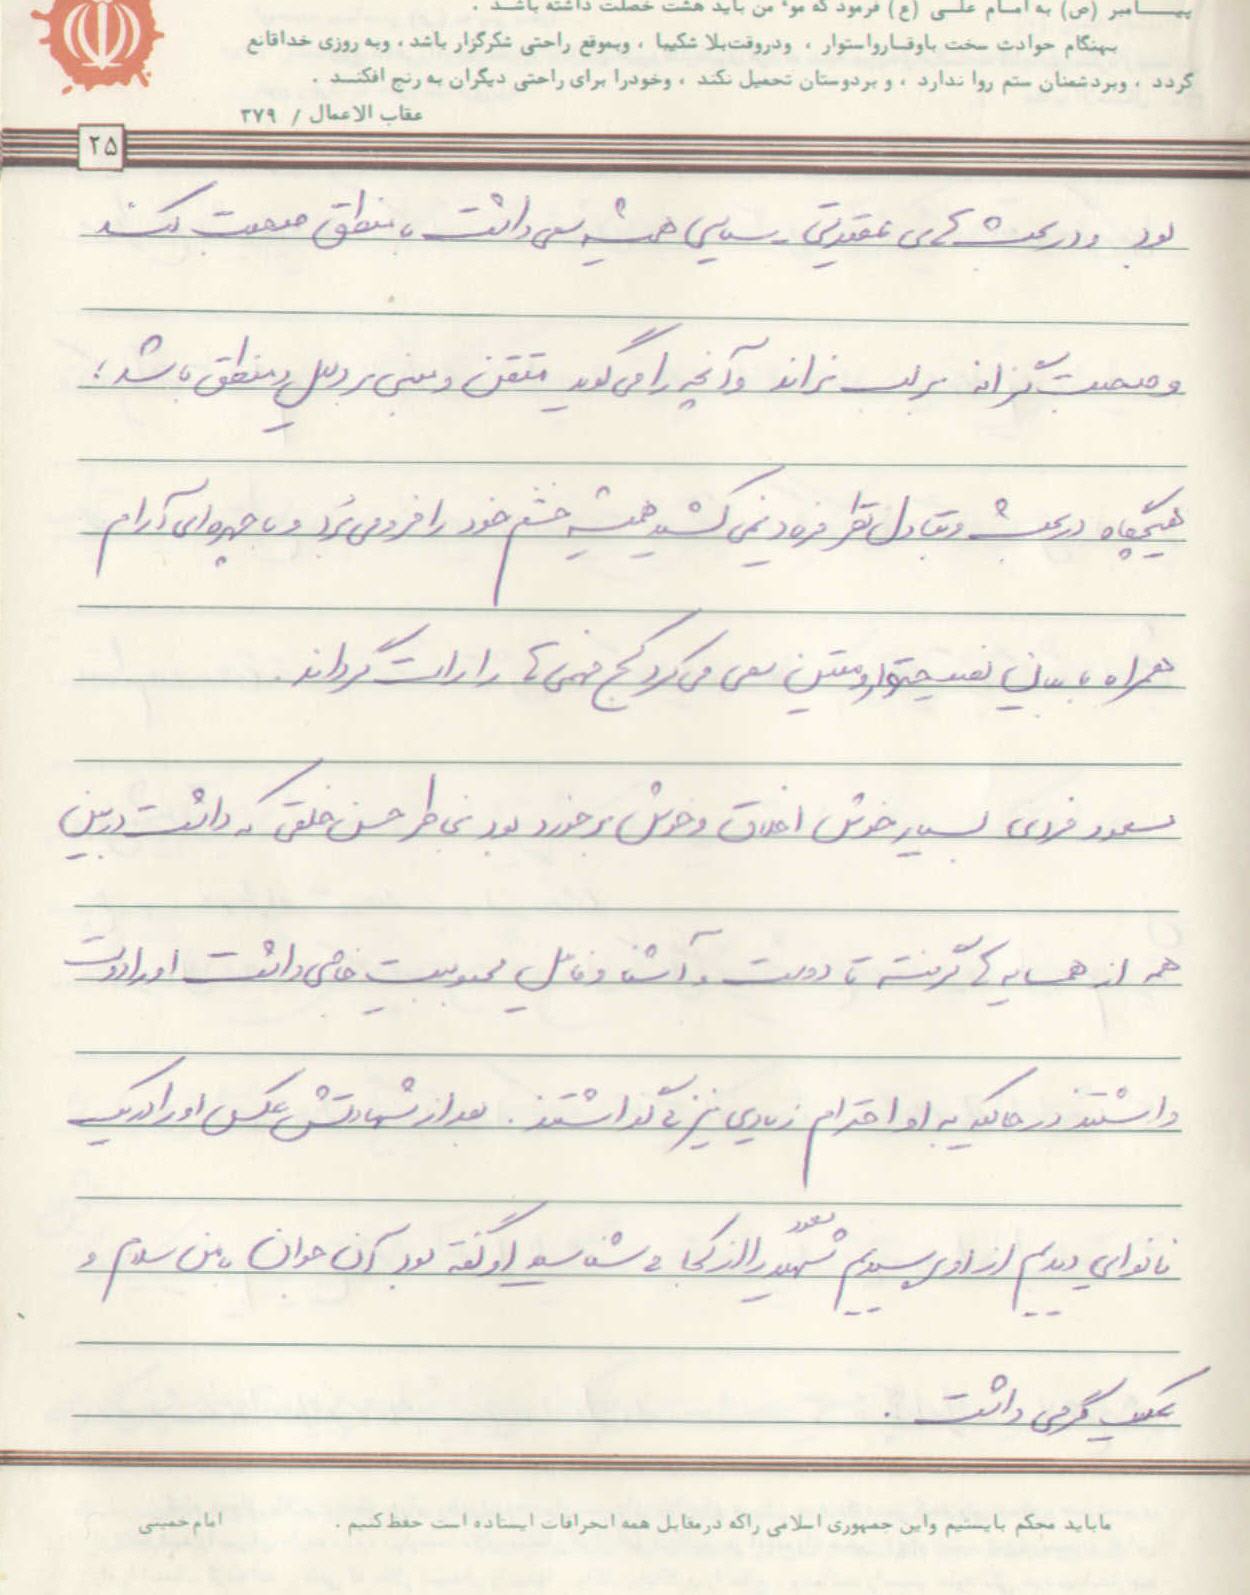 پیـــامبر (ص) به امـام علـــی (ع) فرمود که مو٬ من باید هشت خصلت داشته باشد .
بهنگام حوادث سخت باوقـارواستوار ، ودروقت‌بلا شکیبا ، وبموقع راحتی شکرگزار باشد ، وبه روزی خداقانع
گردد ، وبردشمنان ستم روا ندارد ، و بردوستان تحمیل نکند ، وخودرا برای راحتی دیگران به رنج افکنـد .
عقاب الاعمال / ۳۷۹
۲۵
بود و در بحث های عقیدتی ـ سیاسی همیشه سعی داشت با منطق صحبت کند
و صحبت گزافه بر لب نراند و آنچه را می گوید متقن و مبنی بر دلیل و منطق باشد ؛
هیچگاه در بحث و تبادل نظر فریاد نمی کشید همیشه خشم خود را فرو می بُرد و با چهره‌ای آرام
همراه با بیانی نصیحتوار و متین سعی می کرد کج فهمی ها را راست گرداند .
مسعود فردی بسیار خوش اخلاق و خوش برخورد بود بخاطر حسن خلقی که داشت در بین
همه از همسایه ها گرفته تا دوست و آشنا و فامیل محبوبیت خاصی داشت او را دوست
داشتند در حالیکه به او احترام زیادی نیز می گذاشتند . بعد از شهادتش عکس او را در یک
نانوایی دیدیم از او پرسیدیم شهید مسعود را از کجا می شناسید او گفته بود آن جوان با من سلام و
علیک گرمی داشت .
ماباید محکم بایستیم واین جمهوری اسلامی راکه درمقابل همه انحرافات ایستاده است حفظ کنیم .	امام خمینی